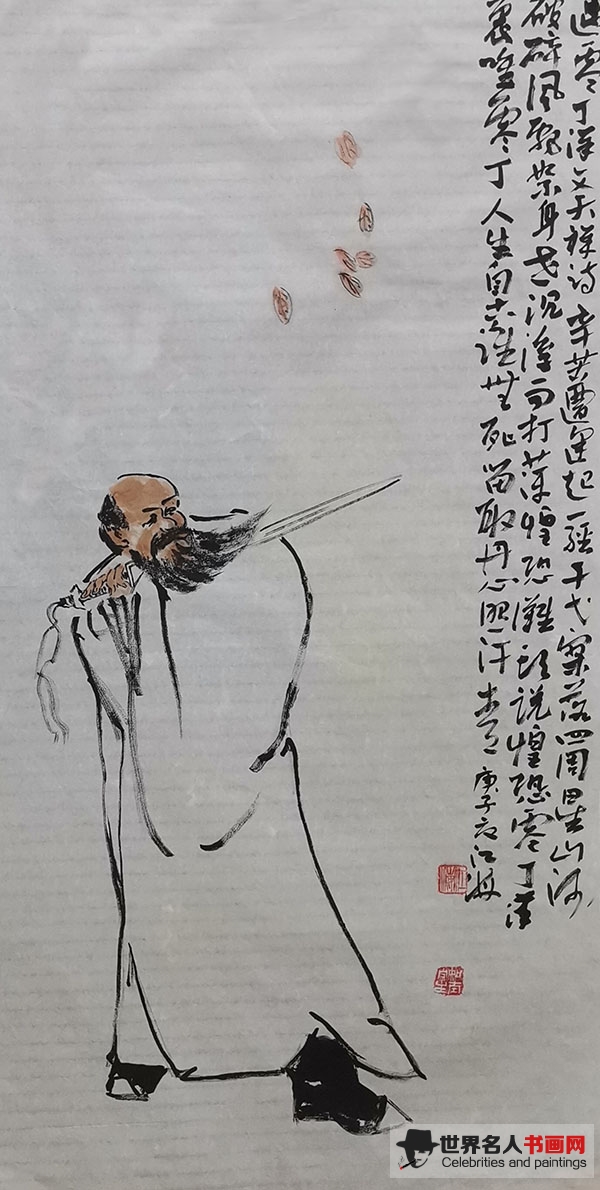 过零丁洋文天祥诗辛苦遭逢起一经干戈寥落四周星山河
破碎风飘絮身世沉浮雨打萍惶恐滩头说惶恐零丁洋
里叹零丁人生自古谁無死留取丹心照汗青
庚子江海
世界名人书画网
Celebrities and paintings